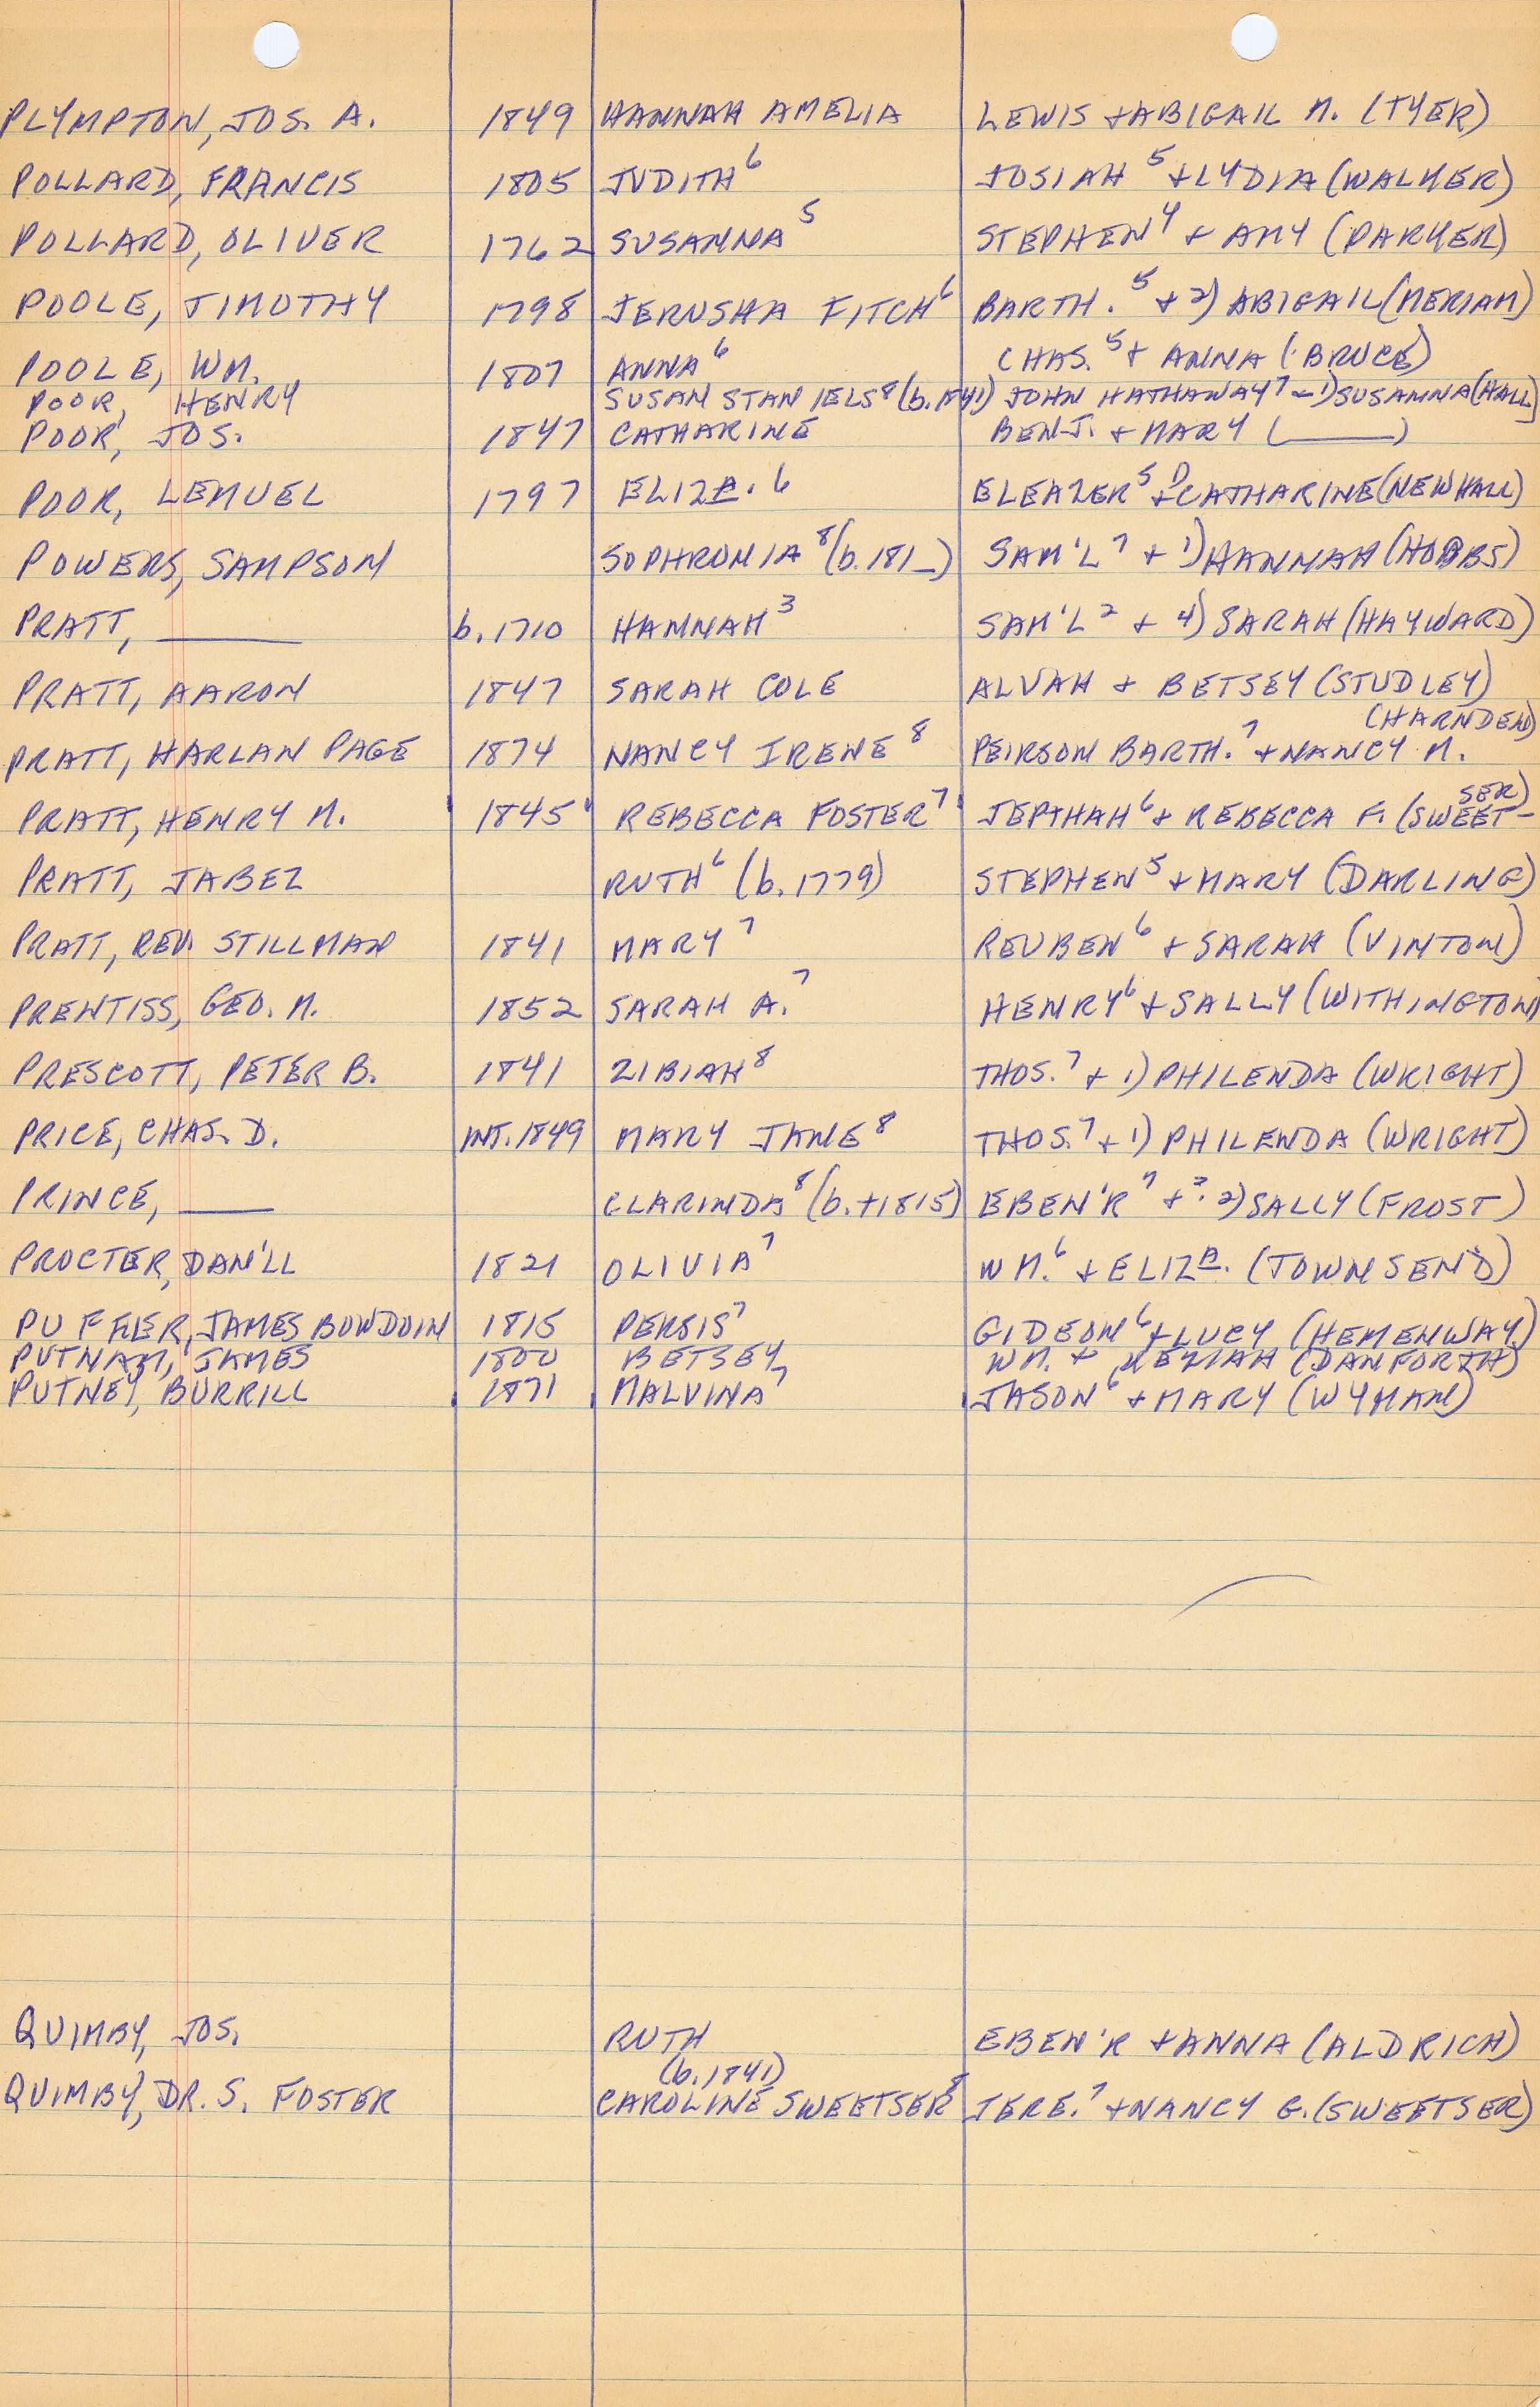 PLYMPTON, JOS. A. 1849 HANNAH AMELIA LEWIS + ABIGAIL M. (TYER)
POLLARD, FRANCIS 1805 JUDITH⁶ JOSIAH⁵ + LYDIA (WALKER)
POLLARD, OLIVER 1762 SUSANNA⁵ STEPHEN⁴ + AMY (PARKER)
POOLE, TIMOTHY 1798 JERUSHA FITCH⁶ BARTH.⁵ + 2) ABIGAIL (MERIAM)
POOLE, WM. 1807 ANNA⁶ CHAS.⁵ + ANNA (BRUCE)
POOR, HENRY SUSAN STANIELS⁸ (b. 1841) JOHN HATHAWAY⁷ – 1) SUSANNA (HALL)
POOR, JOS. 1847 CATHARINE BENJ. + MARY (______)
POOR, LEMUEL 1797 ELIZA. 6 ELEAZER⁵ + CATHARINE (NEWHALL)
POWERS, SAMPSON SOPHRONIA⁸ (b. 181_) SAM'L⁷ + 1) HANNAH (HOBBS)
PRATT, ______ b. 1710 HANNAH³ SAM'L² + 4) SARAH (HAYWARD)
PRATT, AARON 1847 SARAH COLE ALVAH + BETSEY (STUDLEY)
(HARNDEN)
PRATT, HARLAN PAGE 1874 NANCY IRENE⁸ PEIRSON BARTH.⁷ + NANCY M.
SER)
PRATT, HENRY M. 1845 REBECCA FOSTER⁷ JEPTHAH⁶ + REBECCA F. (SWEET-
PRATT, JABEZ RUTH⁶ (b. 1779) STEPHEN⁵ + MARY (DARLING)
PRATT, REV. STILLMAN 1841 MARY⁷ REUBEN⁶ + SARAH (VINTON)
PRENTISS, GEO. M. 1852 SARAH A.⁷ HENRY⁶ + SALLY (WITHINGTON)
PRESCOTT, PETER B. 1841 ZIBIAH⁸ THOS.⁷ + 1) PHILENDA (WRIGHT)
PRICE, CHAS. D. INT. 1849 MARY JANE⁸ THOS.⁷ + 1) PHILENDA (WRIGHT)
PRINCE, ____ CLARINDA⁸ (b. +1815) EBEN'R⁷ + ? 2) SALLY (FROST)
PROCTER, DAN'LL 1821 OLIVIA⁷ WM.⁶ + ELIZA. (TOWNSEND)
PUFFER, JAMES BOWDOIN 1815 PERSIS⁷ GIDEON⁶ + LUCY (HEMENWAY)
PUTNAM, JAMES 1800 BETSEY WM. + KEZIAH (DANFORTH)
PUTNEY, BURRILL 1871 MALVINA⁷ JASON⁶ + MARY (WYMAN)
QUIMBY, JOS. RUTH EBEN'R + ANNA (ALDRICH)
(b. 1841)
QUIMBY, DR. S. FOSTER CAROLINE SWEETSER⁸ JERE.⁷ + NANCY G. (SWEETSER)